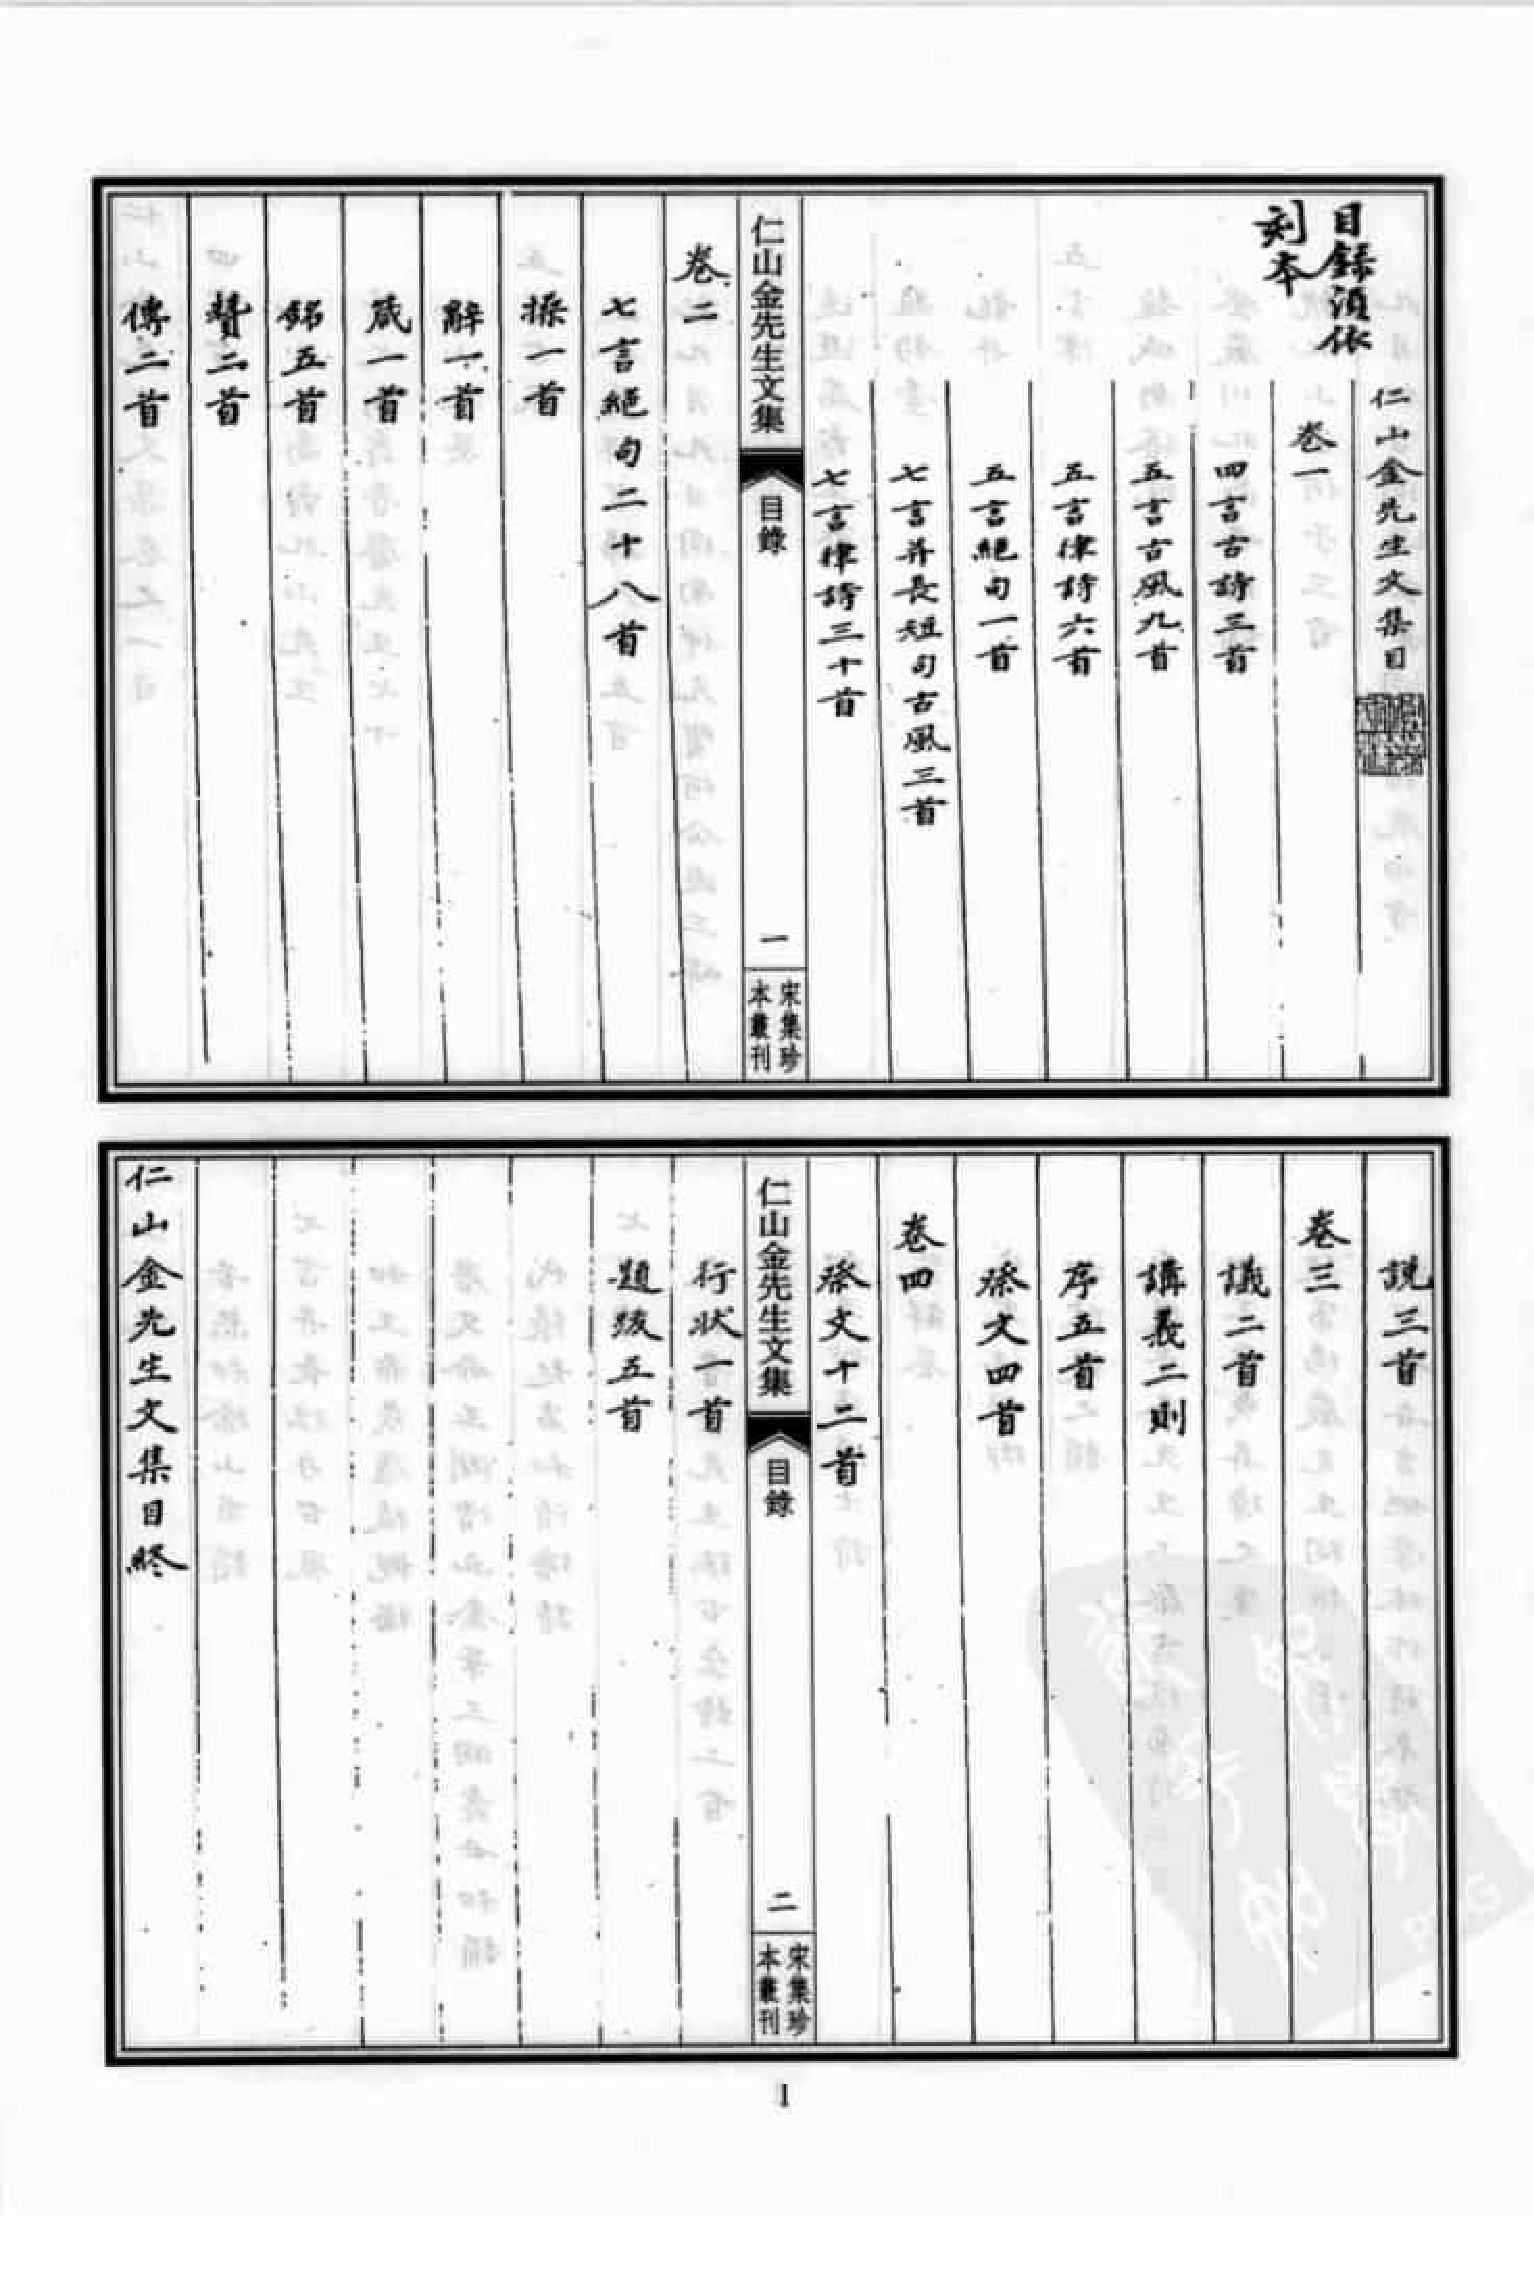 目錄須依
刻本
仁山金先生文集目
卷一
四言古詩三首
五言古風九首
五言律詩六首
五言絕句一首
七言并長短句古風三首
七言律詩三十首
仁山金先生文集
目錄
一
宋集珍
本叢刊
卷二
七言絕句二十八首
操一首
辭一首
箴一首
銘五首
贊二首
傳二首
說三首
卷三
議二首
講義二則
序五首
祭文四首
卷四
祭文十二首
仁山金先生文集
目錄
二
宋集珍
本叢刊
行狀一首
題跋五首
仁山金先生文集目終
1